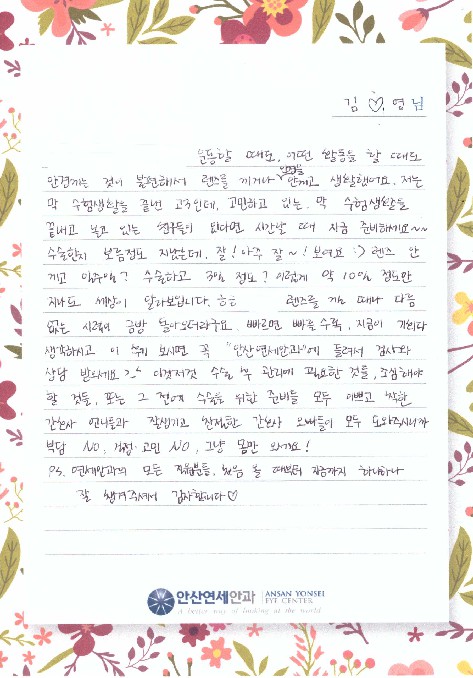 김 ♡영님
운동할 때도, 어떤 활동을 할 때도
안경끼는 것이 불편해서 렌즈를 끼거나 안경을 안끼고 생활했어요. 저는
막 수험생활을 끝낸 고3인데, 고민하고 있는, 막 수험생활을
끝내고 놀고 있는 친구들이 있다면 시간날 때 지금 준비하세요~~
수술한지 보름정도 지났는데, 잘! 아주 잘~! 보여요 :) 렌즈 안
끼고 일주일? 수술하고 3일 정도? 이렇게 약 10일 정도만
지나도 세상이 달라보입니다. ㅎㅎ 렌즈를 끼는 때나 다름
없는 시력이 금방 돌아오더라구요. 빠르면 빠를 수록, 지금이 기회다
생각하시고 이 후기 보시면 꼭 "안산연세안과"에 들려서 검사와
상담 받으세요 ^^ 이것저것 수술 후 관리에 필요한 것들, 조심해야
할 것들, 또는 그 전에 수술을 위한 준비를 모두 이쁘고 착한
간호사 언니들과 잘생기고 친절한 간호사 오빠들이 모두 도와주시니까
부담 NO, 걱정·고민 NO, 그냥 몸만 오세요!
P.S. 연세안과의 모든 직원분들, 처음 볼 때부터 지금까지 하나하나
잘 챙겨주셔서 감사합니다♡
안산연세안과 ANSAN YONSEI
EYE CENTER
a better way of looking at the world